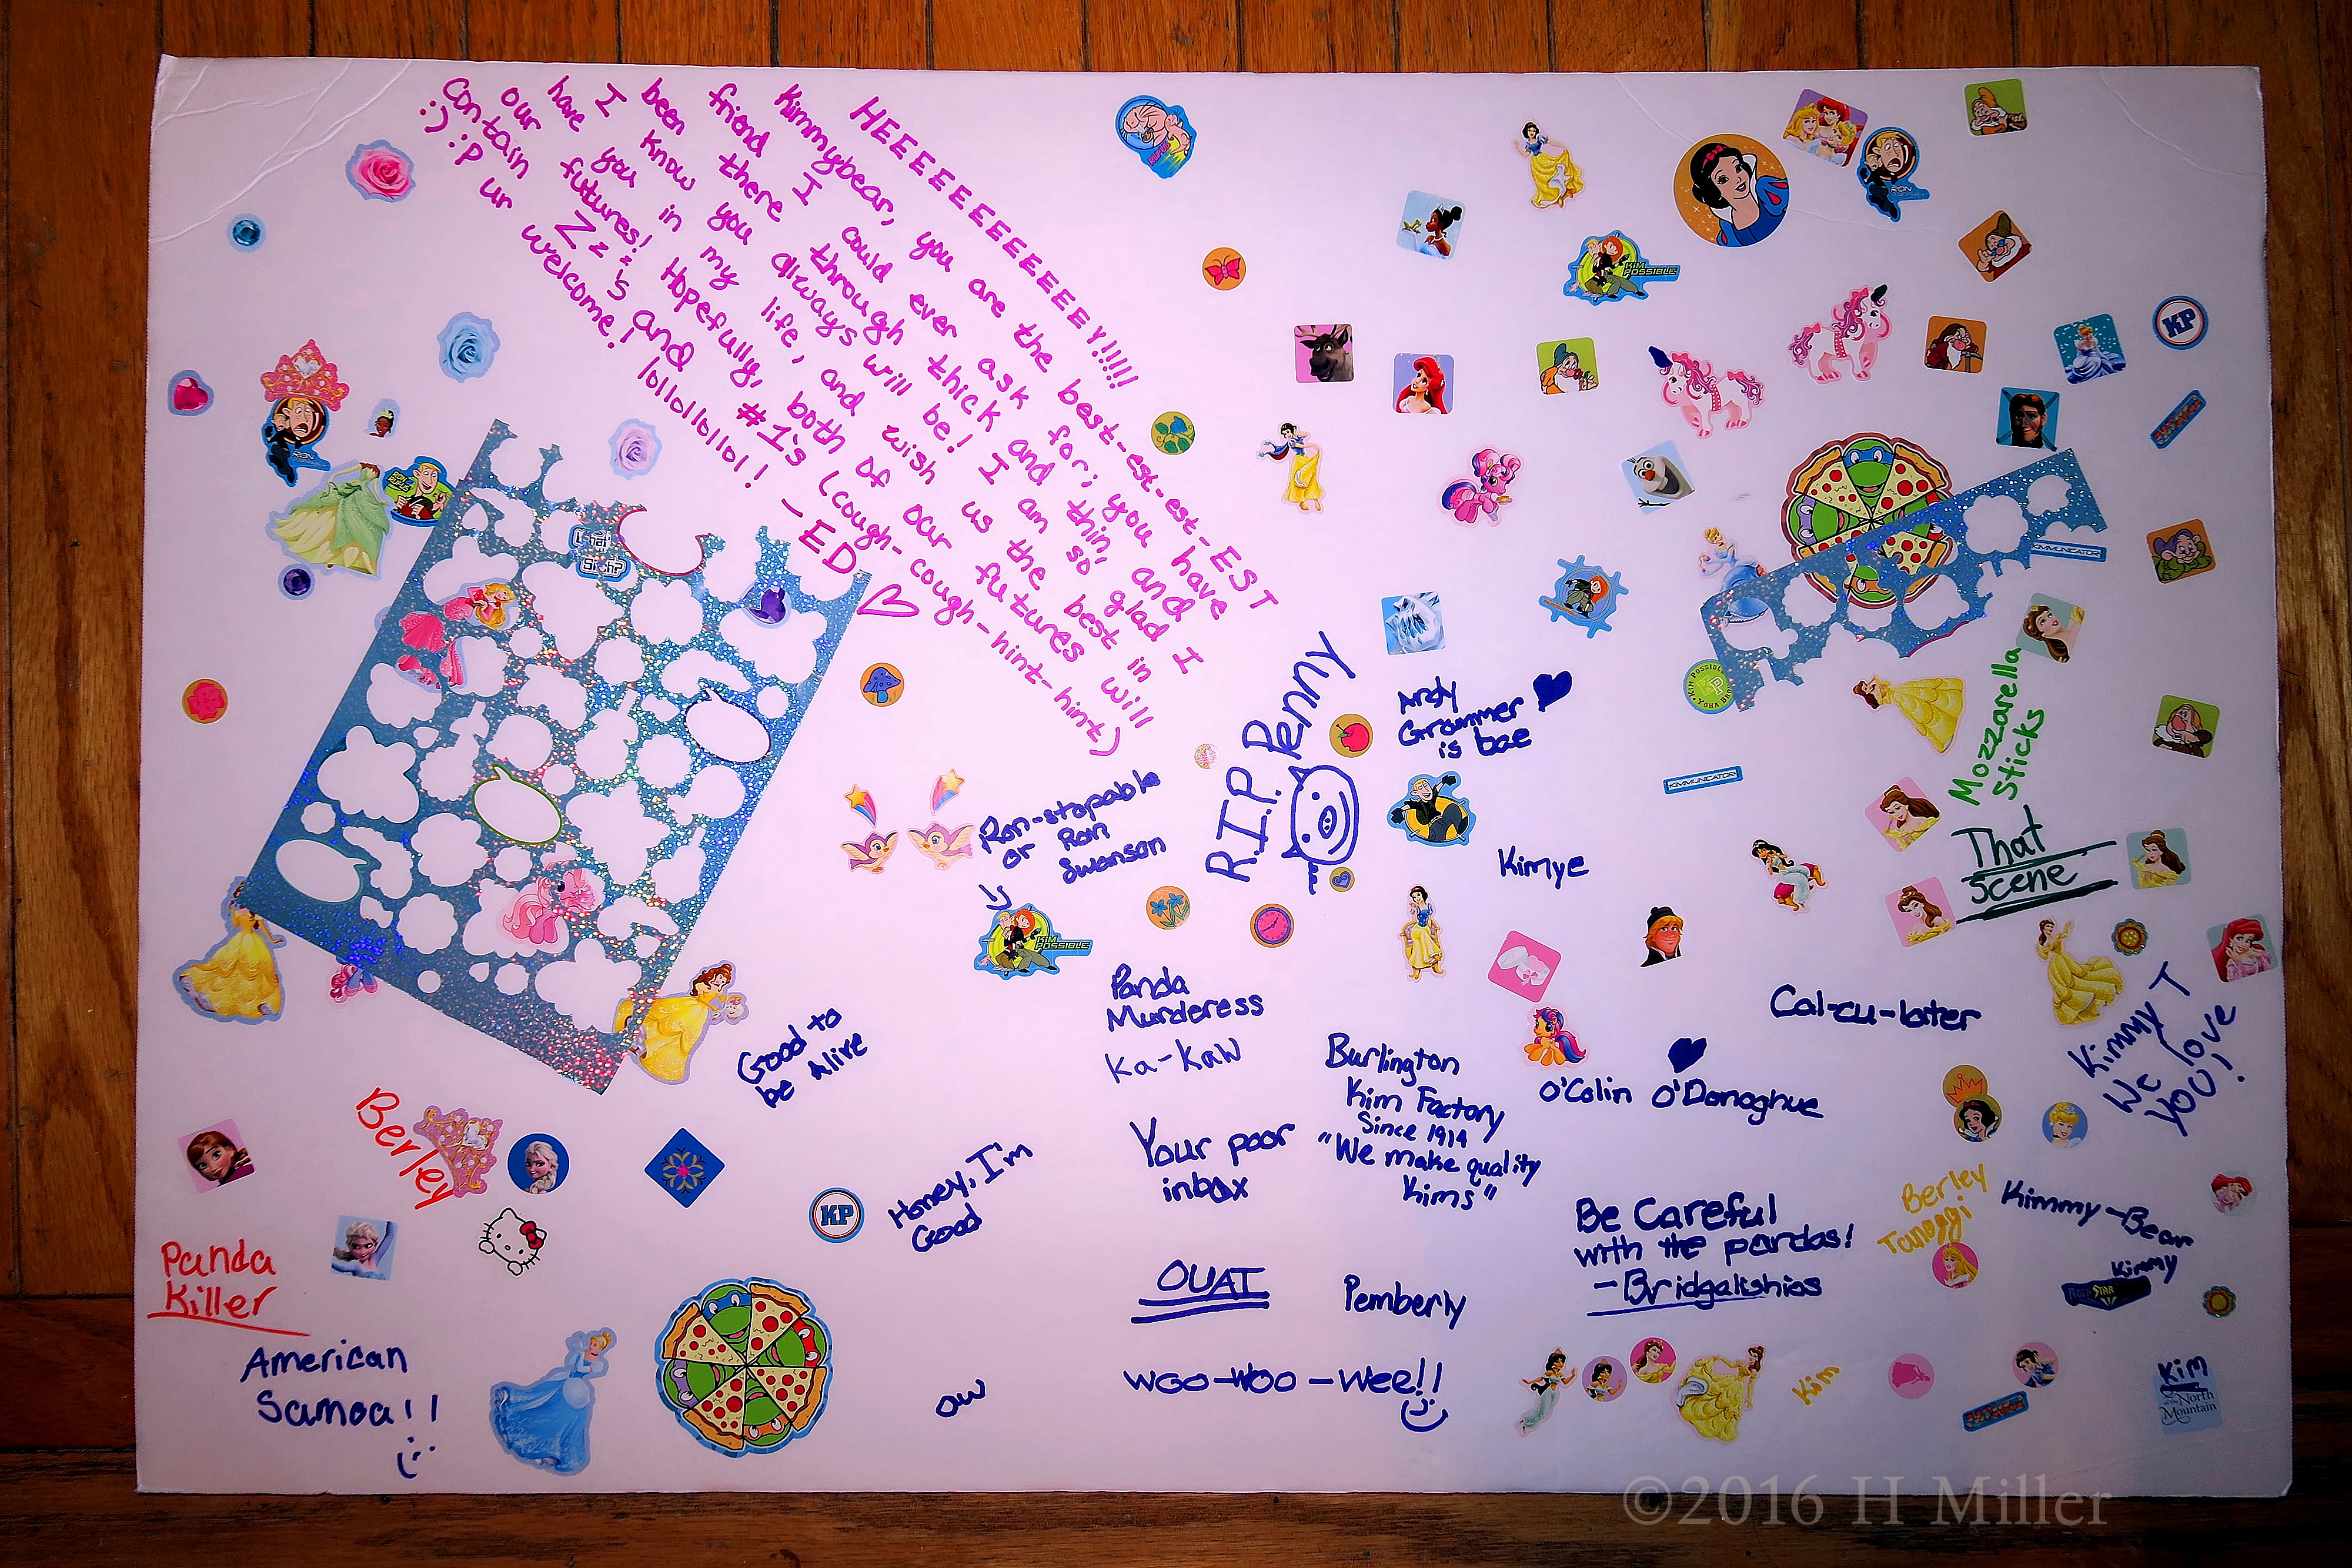 HEEEEEEEEEEEEEEY!!!!!
Kimmybear, you are the best-est-est-EST
friend I could ever ask for; you have
been there through thick and thin, and
I know you always will be! I am so glad I
have you in my life, and wish us the best in
our futures! Hopefully, both of our futures will
contain Zz's and #1's (cough-cough-hint-hint)
:) :P ur welcome! lollollollol! - ED ♡
RUFUS
RON
KIM POSSIBLE
KP
RON
What's the Sitch?
KIMMUNICATOR!
R.I.P. Penny
Andy
Grammer ♥
is bae
KIM POSSIBLE
KP
Mozzarella
Sticks
KIMMUNICATOR!
Ron-stopable
or Ron
Swanson
KIM POSSIBLE
Kimye
That
Scene
Panda
Murderess
Ka-Kaw
Good to
be Alive
Cal-cu-later
Kimmy T
We love
YOU!
Burlington
Kim Factory
Since 1914
"We make quality
Kims"
♥
O'Colin O'Donoghue
Berley
Your poor
inbox
Honey, I'm
Good
KP
Be Careful
with the pandas!
- Bridgakshios
Berley
Tanoggi
Kimmy-Bear
Kimmy
ROCK STAR
Panda
Killer
OUAT
Pemberly
American
Samoa!!
:)
ow
WOO-WOO-Wee!!
Kim
Kim
of the North
Mountain
©2016 H Miller